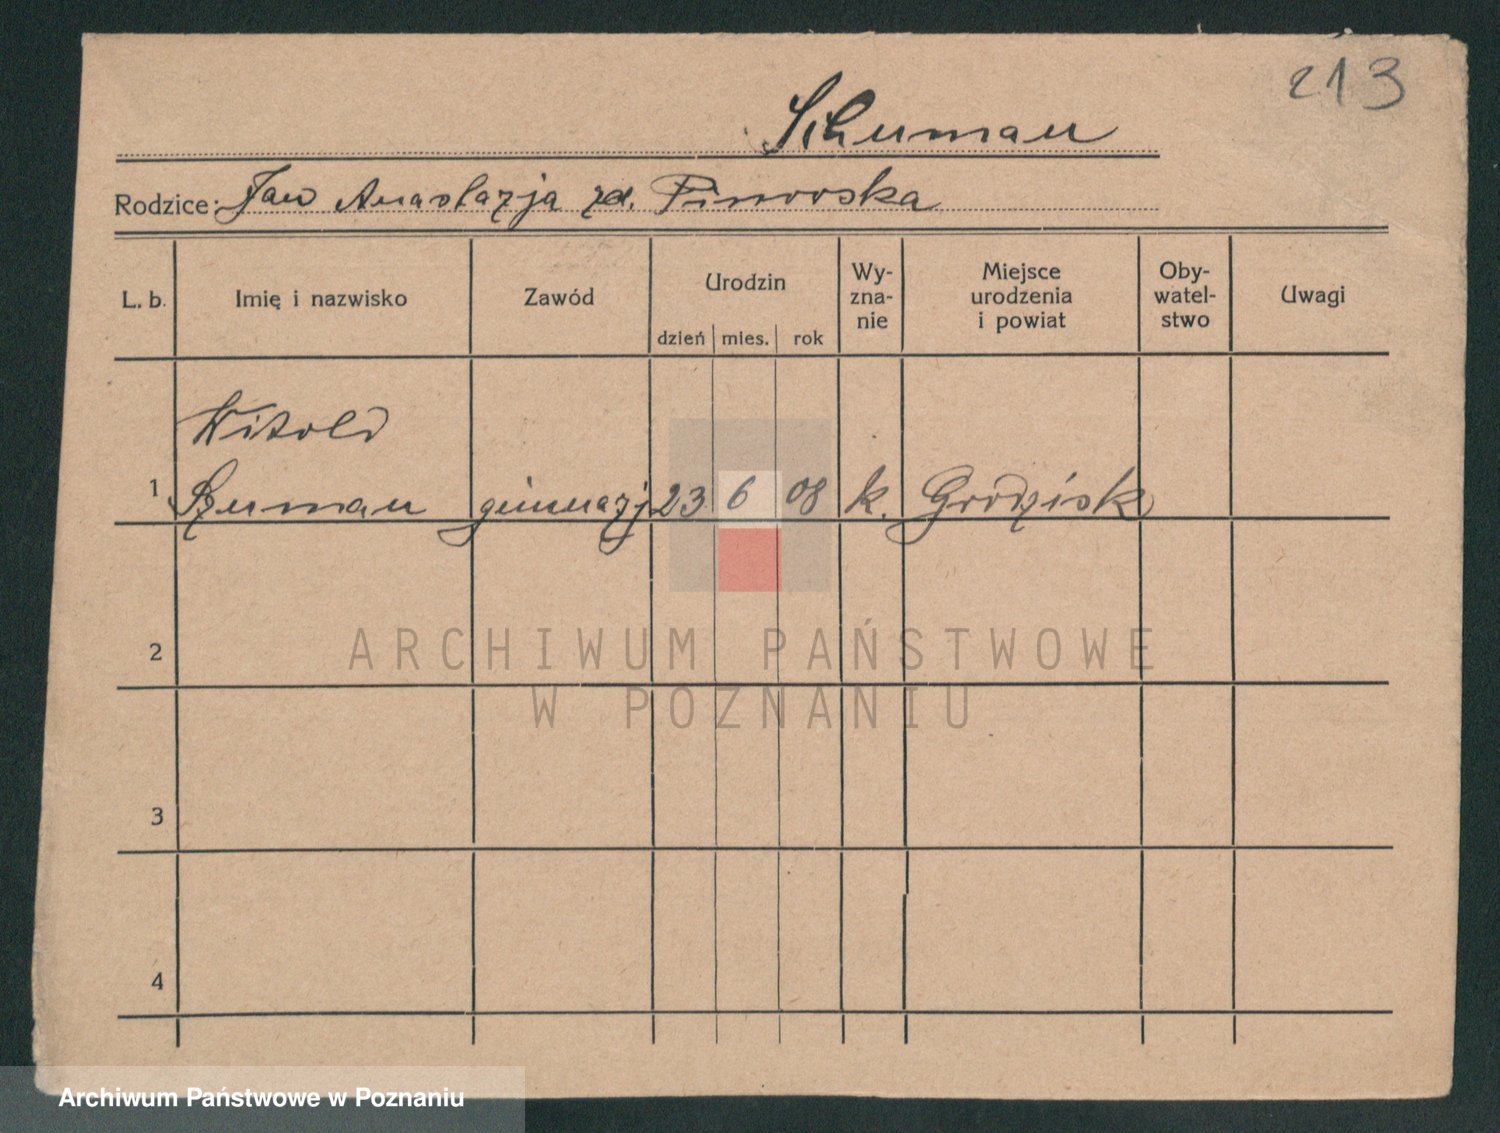 213
Schuman
Rodzice: Jan Anastazja zd. Piwowska
L. b.
Imię i nazwisko
Zawód
Urodzin
dzień mies. rok
Wy-
zna-
nie
Miejsce
urodzenia
i powiat
Oby-
watel-
stwo
Uwagi
Witold
1 Szuman gimnazj 23 6 08 k. Grodzisk
2
ARCHIWUM PAŃSTWOWE
W POZNANIU
3
4
Archiwum Państwowe w Poznaniu